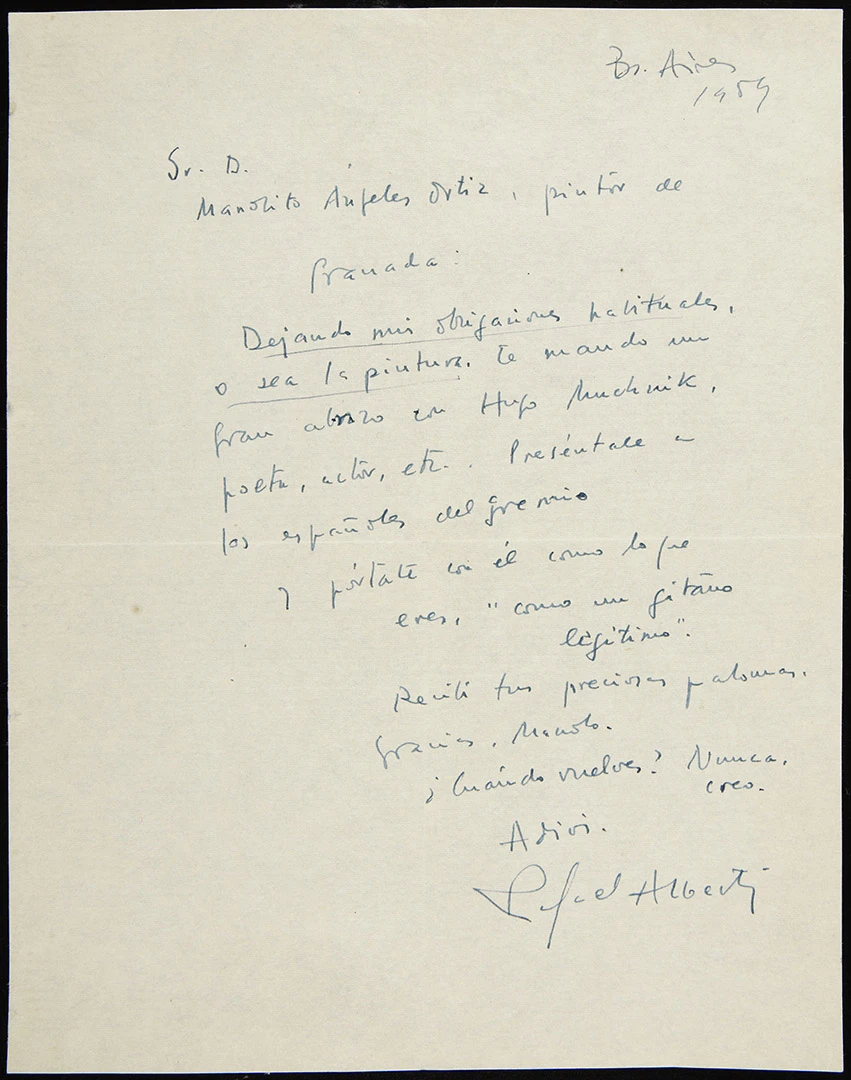 Bs. Aires
1959
Sr. D.
Manolito Ángeles Ortiz, pintor de
Granada:
Dejando mis obligaciones habituales,
o sea la pintura, te mando un
gran abrazo con Hugo Muchnik,
poeta, actor, etc. Preséntale a
los españoles del gremio
y pórtate con él como lo que
eres, "como un gitano
legítimo".
Recibí tus preciosas palomas.
Gracias, Manolo.
¿Cuándo vuelves? Nunca,
creo.
Adiós.
Rafael Alberti